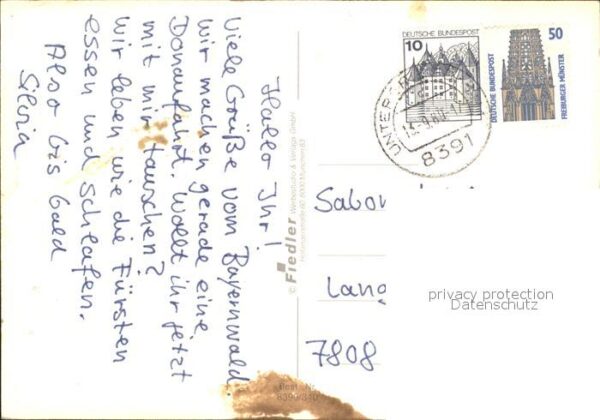 Hallo Ihr!
Viele Grüße vom Bayernwald.
Wir machen gerade eine
Donaufahrt. Wollt ihr jetzt
mit mir tauschen?
Wir leben wie die Fürsten
essen und schlafen.
Also bis bald
Silvia
© Fiedler
DEUTSCHE BUNDESPOST
10
50
DEUTSCHE BUNDESPOST
FREIBURGER MÜNSTER
8391
Lang
7808
privacy protection
Datenschutz
Best. Nr.